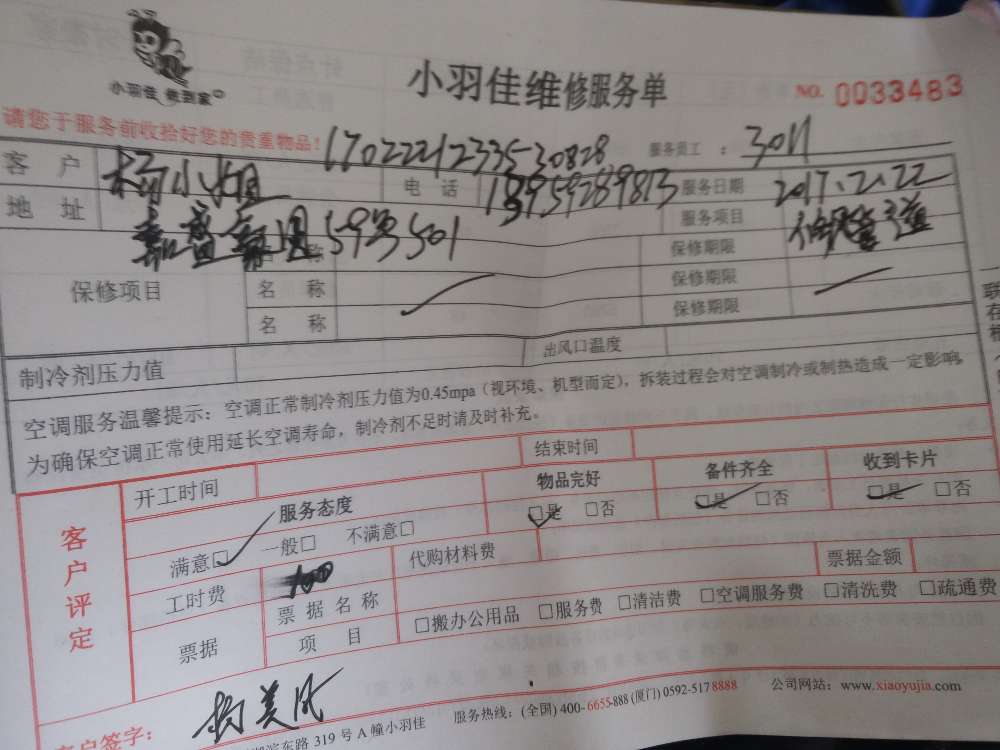 小羽佳 做到家
小羽佳维修服务单
NO. 0033483
请您于服务前收拾好您的贵重物品!
170222123353 0828
服务员工 : 3011
客 户 杨小姐 电 话 13959289813 服务日期 2017.2.22
地 址 嘉盛豪园59号501 服务项目
名 称 保修期限
保修项目 名 称 保修期限
名 称 保修期限
制冷剂压力值 出风口温度
空调服务温馨提示:空调正常制冷剂压力值为0.45mpa(视环境、机型而定),拆装过程会对空调制冷或制热造成一定影响,
为确保空调正常使用延长空调寿命,制冷剂不足时请及时补充。
开工时间 结束时间
客户评定
服务态度 物品完好 备件齐全 收到卡片
满意□ 一般□ 不满意□ □是 □否 □是 □否 □是 □否
工时费 100 代购材料费 票据金额
票据 票据名称
项 目 □搬办公用品 □服务费 □清洁费 □空调服务费 □清洗费 □疏通费
客户签字: 杨美凤
东路 319 号 A 幢小羽佳 服务热线:(全国) 400-6655-888 (厦门) 0592-517 8888 公司网站:www.xiaoyujia.com